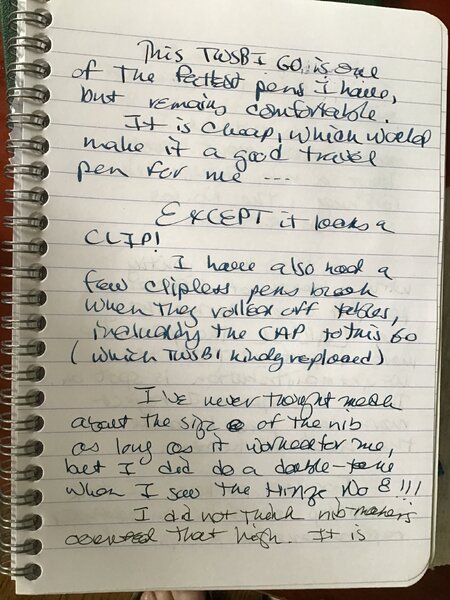 This TWSBI GO is one
of the fattest pens I have,
but remains comfortable.
It is cheap, which would
make it a good travel
pen for me ---
EXCEPT it lacks a
CLIP!
I have also had a
few clipless pens break
when they rolled off tables,
including the CAP to this GO
(which TWSBI kindly replaced)
I've never thought much
about the size of the nib
as long as it worked for me,
but I did do a double-take
when I saw the No 8!!!
I did not think nib makers
that high. It is